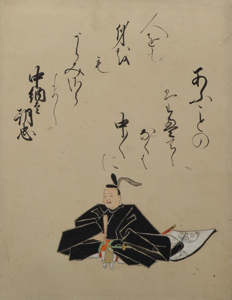 あふことの
たえてし
なくは
中〳〵に
人をも
身を
も
うらみさら
まし
中納言
朝忠